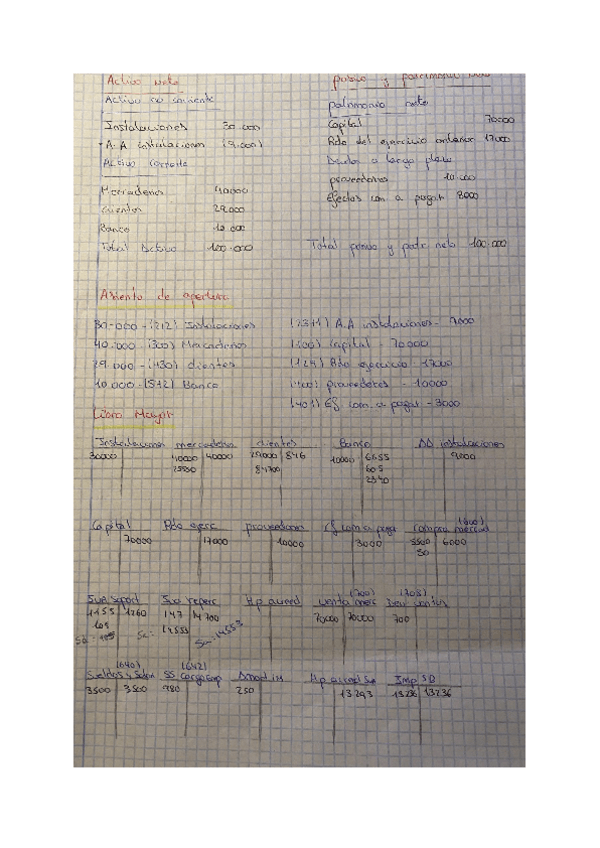 Activo Neto
pasivo y patrimonio neto
Activo no corriente
patrimonio neto
Instalaciones 30.000
Capital 70000
A.A instalaciones (9.000)
Rdo del ejercicio anterior 17000
Activo corriente
Deudas a largo plazo
proveedores 10.000
Mercaderias 40000
Efectos com a pagar 3000
clientes 29.000
Banco 10.000
Total Activo 100.000
Total pasivo y patr neto 100.000
Asiento de apertura
30.000 - (212) Instalaciones
(2811) A.A instalaciones - 9000
40.000 (300) Mercaderias
(100) Capital - 70000
29.000 - (430) clientes
(129) Rdo ejercicio - 17000
10.000 - (572) Banco
(400) proveedores - 10000
(401) Ef com a pagar - 3000
Libro Mayor
Instalaciones mercaderias clientes Banco AA instalaciones
30000 40000 40000 29000 846 10000 6655 9000
25530 84700 605
2540
(600)
Capital Rdo ejerc proveedores Ef com a pagar compra mercad
70000 17000 10000 3000 5500 6000
30
(700) (708)
Iva Soport Iva reperc Hp acreed venta merc Dev ventas
1155 1260 147 14700 70000 70000 700
105 14553
Sa: Sa: Sa: 14553
(640) (642)
Sueldos y Salar SS cargo Emp Amod in Hp acreed Su Imp SD
3500 3500 980 250 13293 13236 13236